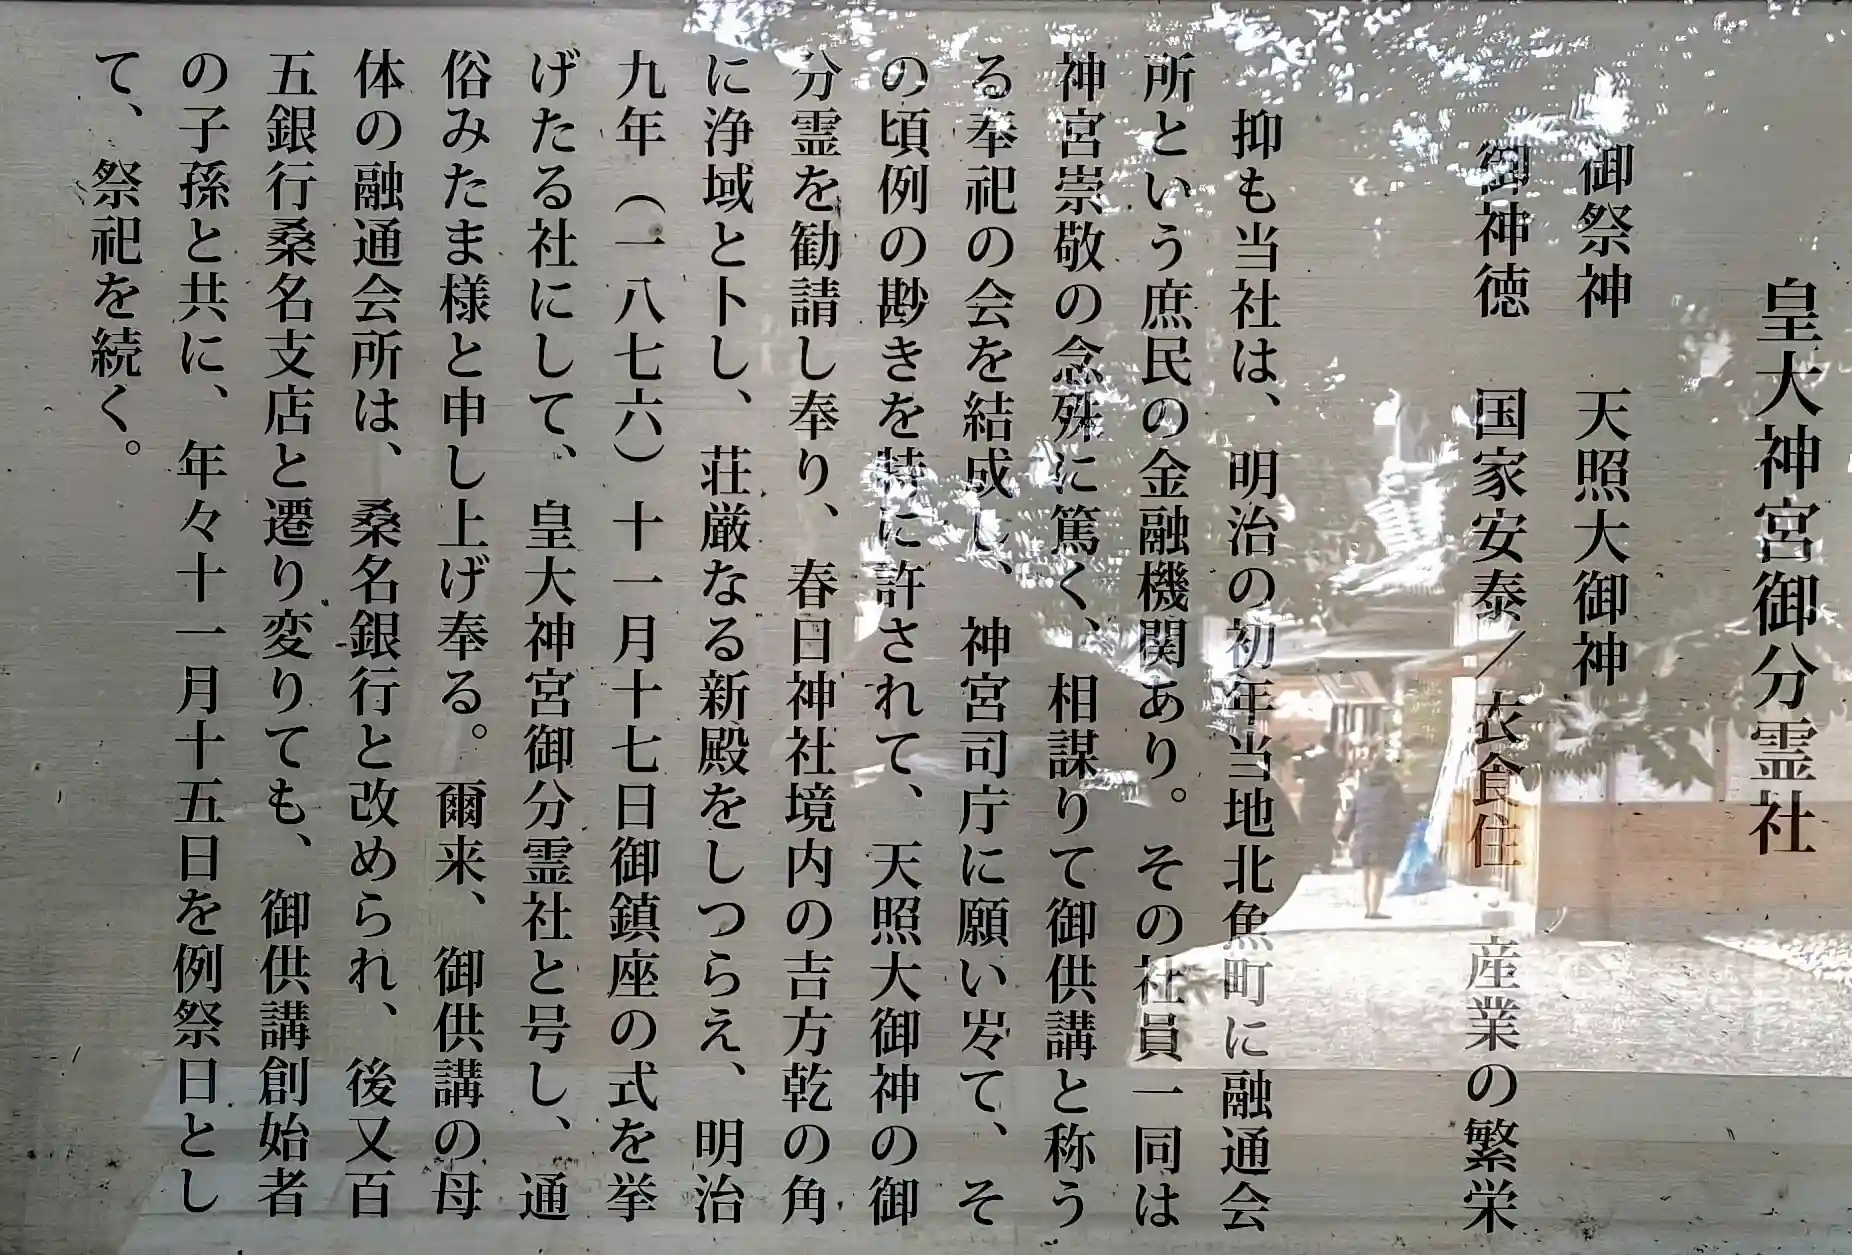 皇大神宮御分霊社
御祭神　天照大御神
御神徳　国家安泰／衣食住　産業の繁栄
抑も当社は、明治の初年当地北魚町に融通会
所という庶民の金融機関あり。その社員一同は
神宮崇敬の念殊に篤く、相謀りて御供講と称う
る奉祀の会を結成し、神宮司庁に願い岺て、そ
の頃例の尠きを特に許されて、天照大御神の御
分霊を勧請し奉り、春日神社境内の吉方乾の角
に浄域と卜し、荘厳なる新殿をしつらえ、明治
九年（一八七六）十一月十七日御鎮座の式を挙
げたる社にして、皇大神宮御分霊社と号し、通
俗みたま様と申し上げ奉る。爾来、御供講の母
体の融通会所は、桑名銀行と改められ、後又百
五銀行桑名支店と遷り変りても、御供講創始者
の子孫と共に、年々十一月十五日を例祭日とし
て、祭祀を続く。